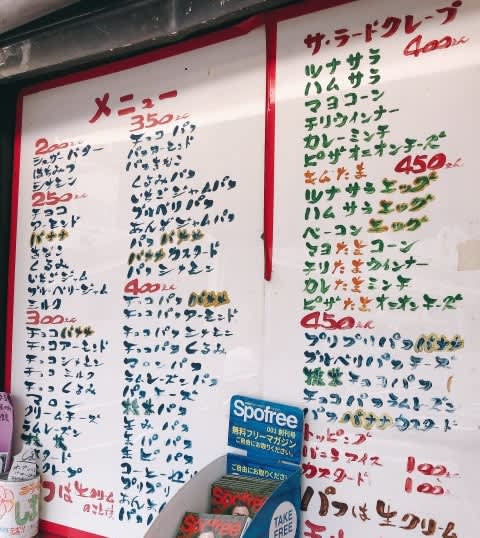 メニュー
200えん
シュガーバター
はちみつ
シナモン
250えん
チョコ
アーモンド
バナナ
きなこ
くるみ
いちごジャム
ブルーベリージャム
ミルク
300えん
チョコバナナ
チョコアーモンド
チョコシナモン
チョコミルク
チョコくるみ
マロン
クリームチーズ
ラムレーズン
抹茶
パフは生クリーム
のことです
350えん
チョコパフ
パフアーモンド
パフきなこ
くるみパフ
いちごジャムパフ
ブルベリパフ
あんずジャムパフ
パフバナナ
バナナカスタード
パフシナモン
400えん
チョコパフバナナ
チョコパフアーモンド
チョコパフシナモン
チョコパフくるみ
マロンパフ
ラムレーズンパフ
チーズパフ
抹茶パフ
ザ・ラードクレープ
400えん
ツナサラ
ハムサラ
マヨコーン
チリウインナー
カレーミンチ
ピザオニオンチーズ
450えん
ツナサラエッグ
ハムサラエッグ
ベーコンエッグ
マヨたまコーン
チリたまウインナー
カレたまミンチ
ピザたまオニオンチーズ
450えん
プリプリパフバナナ
ブルベリパフチーズ
抹茶チョコパフ
チョコパフラムレーズン
パフバナナカスタード
トッピング
バニラアイス 100えん
カスタード 100えん
パフは生クリーム
Spofree
001 創刊号
無料フリーマガジン
ご自由にお取りください。
ご自由にお取りください。
Spofree
Spofree
TAKE
FREE